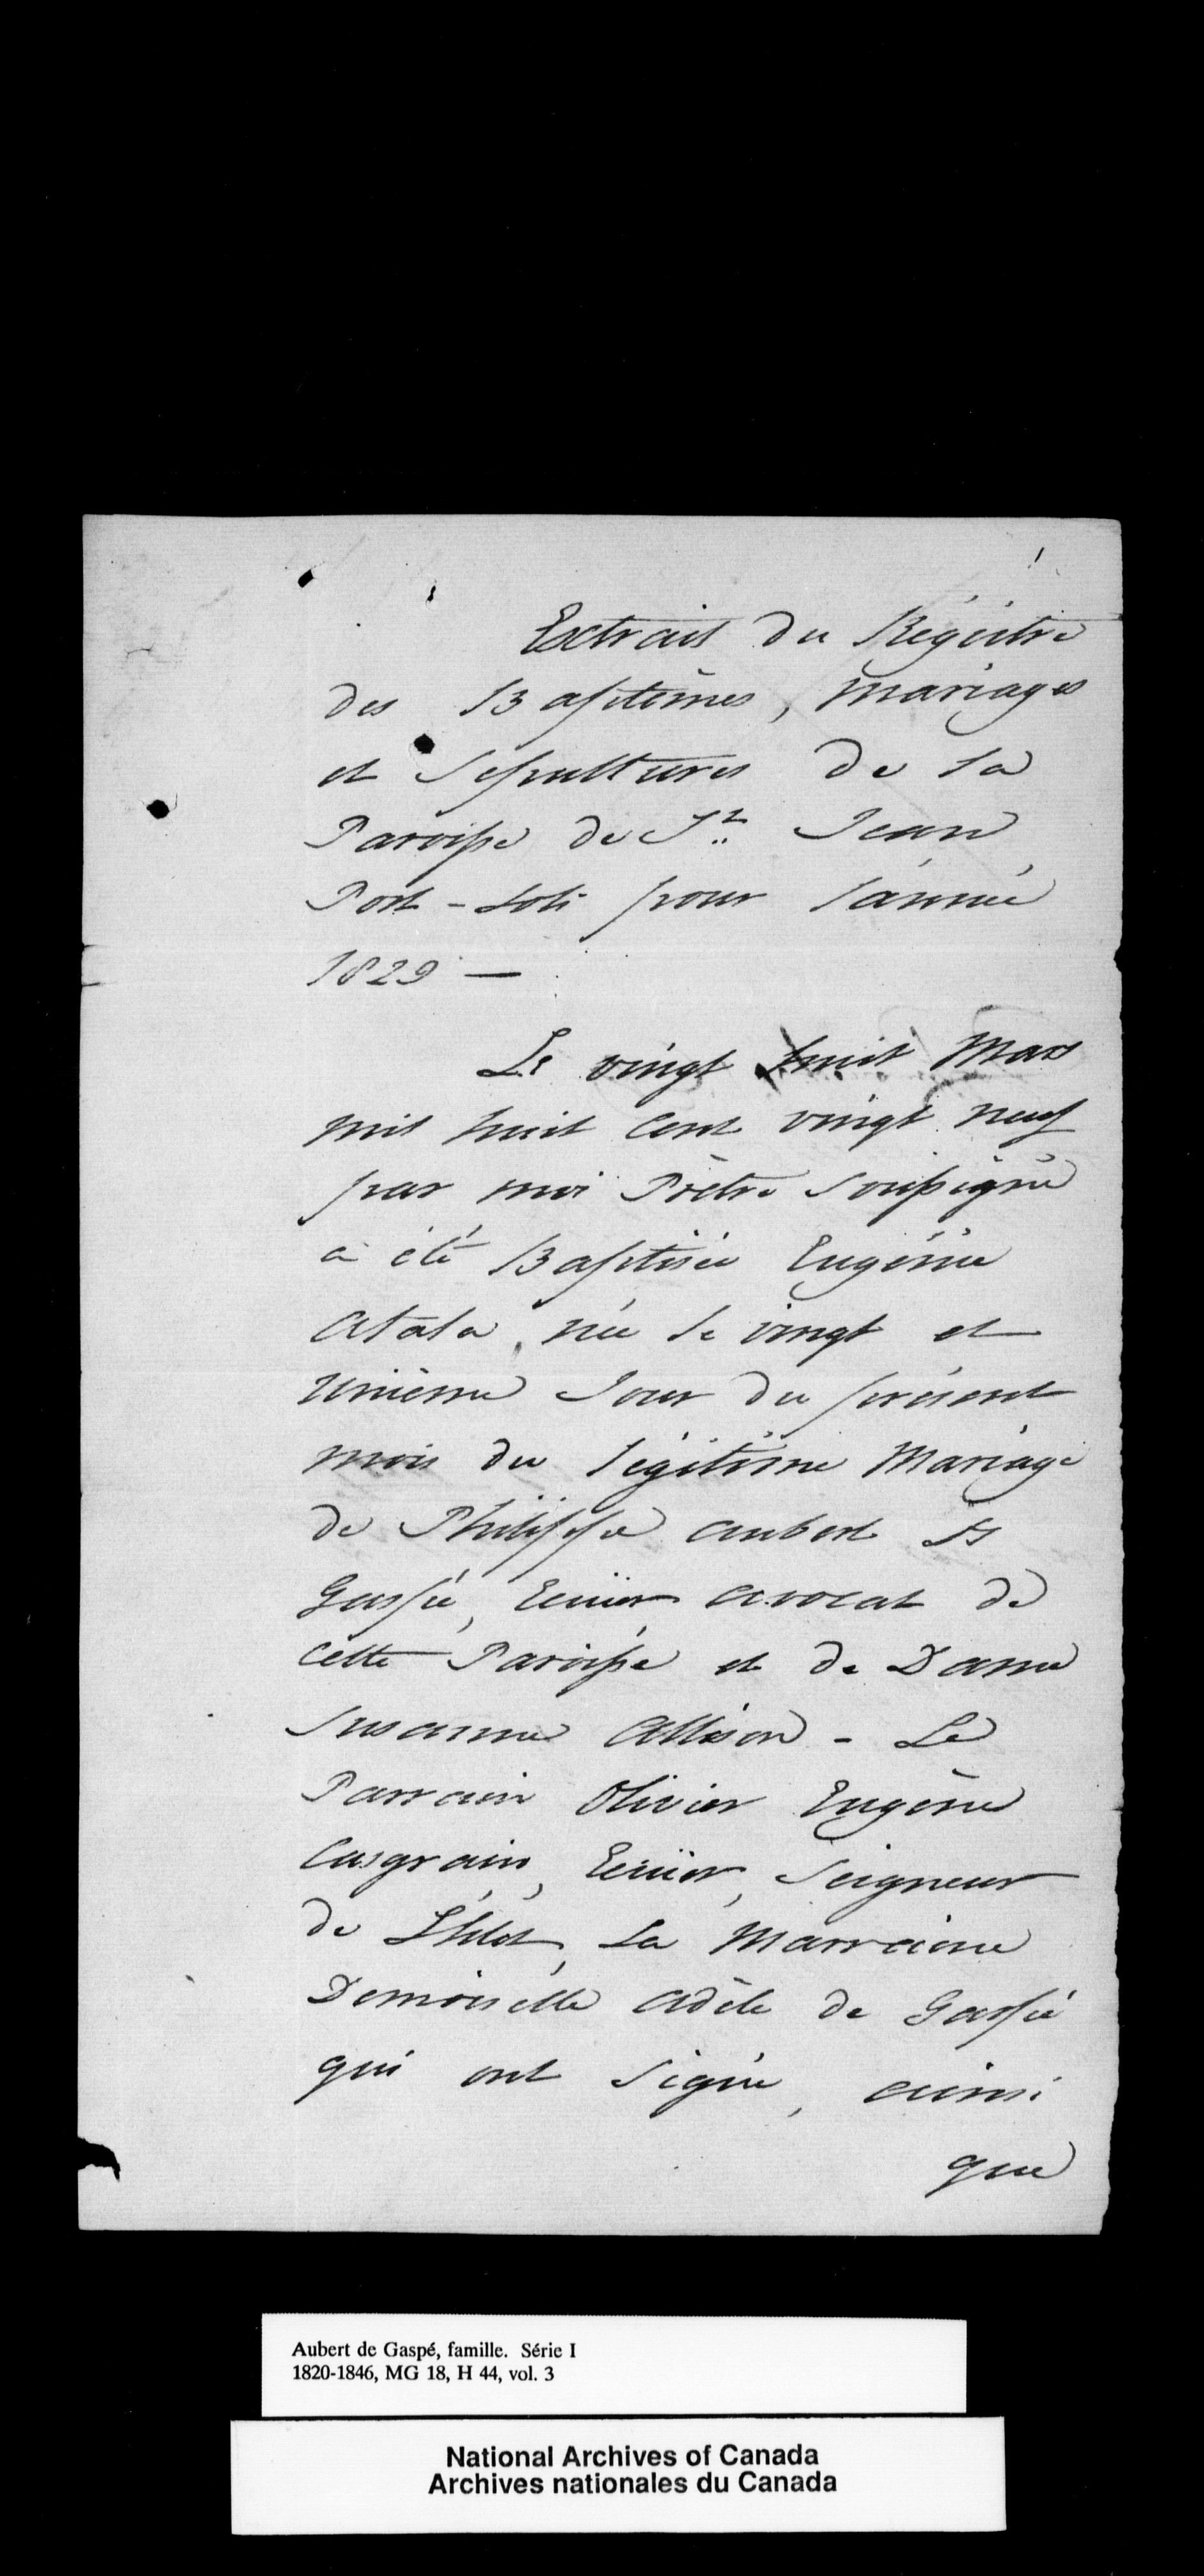 Extrait du Régistre
des Baptêmes, Mariages
et Sépultures de la
Paroisse de St. Jean
Port-Joli pour l'année
1829 —
Le vingt huit Mars
mil huit cent vingt neuf
par moi Prêtre soussigné
a été Baptisée Eugénie
Atala, née le vingt et
unième Jour du présent
mois du légitime Mariage
de Philippe Aubert de
Gaspé, Ecuier avocat de
cette Paroisse et de Dame
Susanne Allison - Le
Parrain Olivier Eugène
Casgrain, Ecuier, Seigneur
de L'Islet, La Marraine
Demoiselle Adèle de Gaspé
qui ont signé, ainsi
que
Aubert de Gaspé, famille. Série I
1820-1846, MG 18, H 44, vol. 3
National Archives of Canada
Archives nationales du Canada